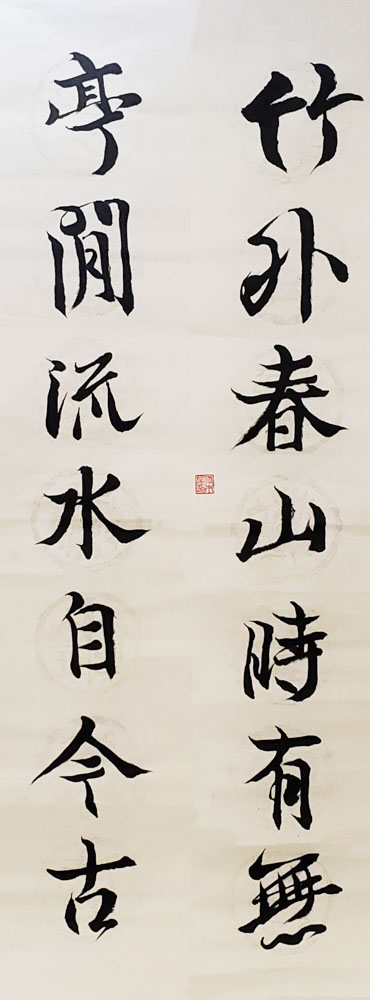 竹外春山時有無
亭間流水自今古